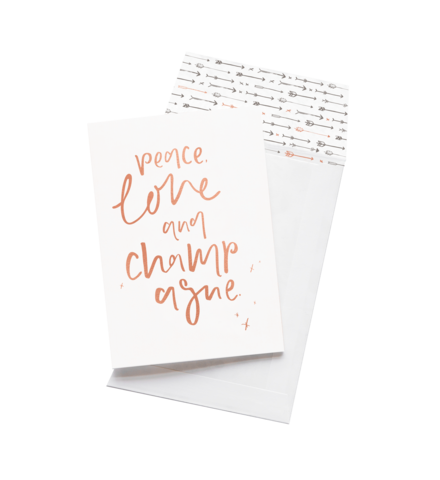 peace.
love
and
champ
agne.